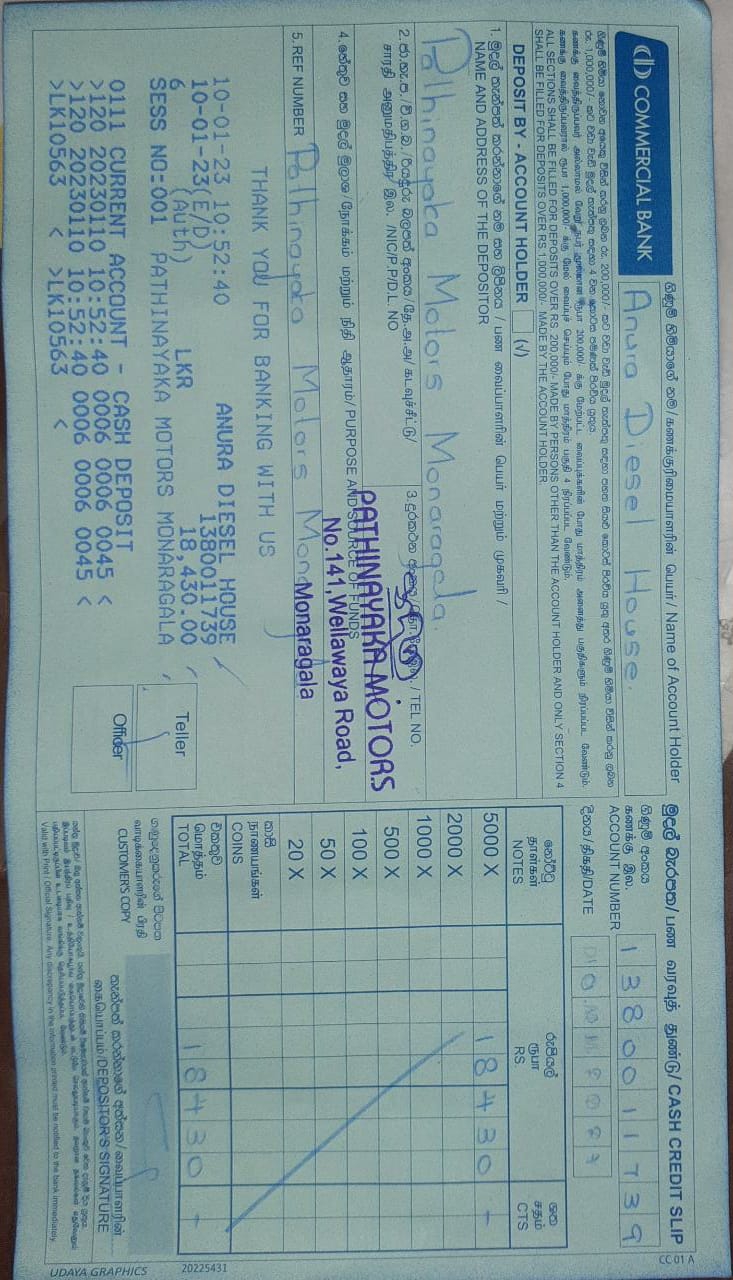 COMMERCIAL BANK
ගිණුම් හිමියාගේ නම/கணக்குரிமையாளரின் பெயர்/ Name of Account Holder
Anura Diesel House.
ALL SECTIONS SHALL BE FILLED FOR DEPOSITS OVER RS. 200,000/- MADE BY PERSONS OTHER THAN THE ACCOUNT HOLDER AND ONLY SECTION 4
SHALL BE FILLED FOR DEPOSITS OVER RS.1,000,000/- MADE BY THE ACCOUNT HOLDER
DEPOSIT BY - ACCOUNT HOLDER (√)
1. මුදල් තැන්පත් කරන්නාගේ නම සහ ලිපිනය / பண வைப்பாளரின் பெயர் மற்றும் முகவரி /
NAME AND ADDRESS OF THE DEPOSITOR
Pathinayaka Motors Monaragala.
சாரதி அனுமதிப்பத்திர இல. /NIC/P.P/D.L. NO
/ TEL NO.
PATHINAYAKA MOTORS
No.141,Wellawaya Road,
Monaragala
4. හේතුව සහ මුදල් මූලාශ්‍ර நோக்கம் மற்றும் நிதி ஆதாரம்/ PURPOSE AND SOURCE OF FUNDS
5. REF NUMBER Pathinayaka Motors
THANK YOU FOR BANKING WITH US
10-01-23 10:52:40 ANURA DIESEL HOUSE
10-01-23(E/D) 1380011739
6 (Auth) LKR 18,430.00
SESS NO:001 PATHINAYAKA MOTORS MONARAGALA
0111 CURRENT ACCOUNT - CASH DEPOSIT
>120 20230110 10:52:40 0006 0006 0045 <
>120 20230110 10:52:40 0006 0006 0045 <
>LK10563 < >LK10563 <
Teller
Officer
මුදල් බැරපත/பண வரவுத் துண்டு/ CASH CREDIT SLIP
ගිණුම් අංකය
கணக்கு இல.
ACCOUNT NUMBER 1380011739
දිනය/திகதி/DATE
නෝට්ටු
தாள்கள்
NOTES
රුපියල්
ரூபா
RS.
ශත
சதம்
CTS
5000 X 18430 -
2000 X
1000 X
500 X
100 X
50 X
20 X
කාසි
நாணயங்கள்
COINS
එකතුව
மொத்தம்
TOTAL 18430 -
ගනුදෙනුකරුගේ පිටපත
வாடிக்கையாளரின் பிரதி
CUSTOMER'S COPY
தைகயொப்பம்/DEPOSITOR'S SIGNATURE
Valid with Print / Official Signature. Any discrepancy in the information printed must be notified to the bank immediately.
UDAYA GRAPHICS
20225431
CC 01 A